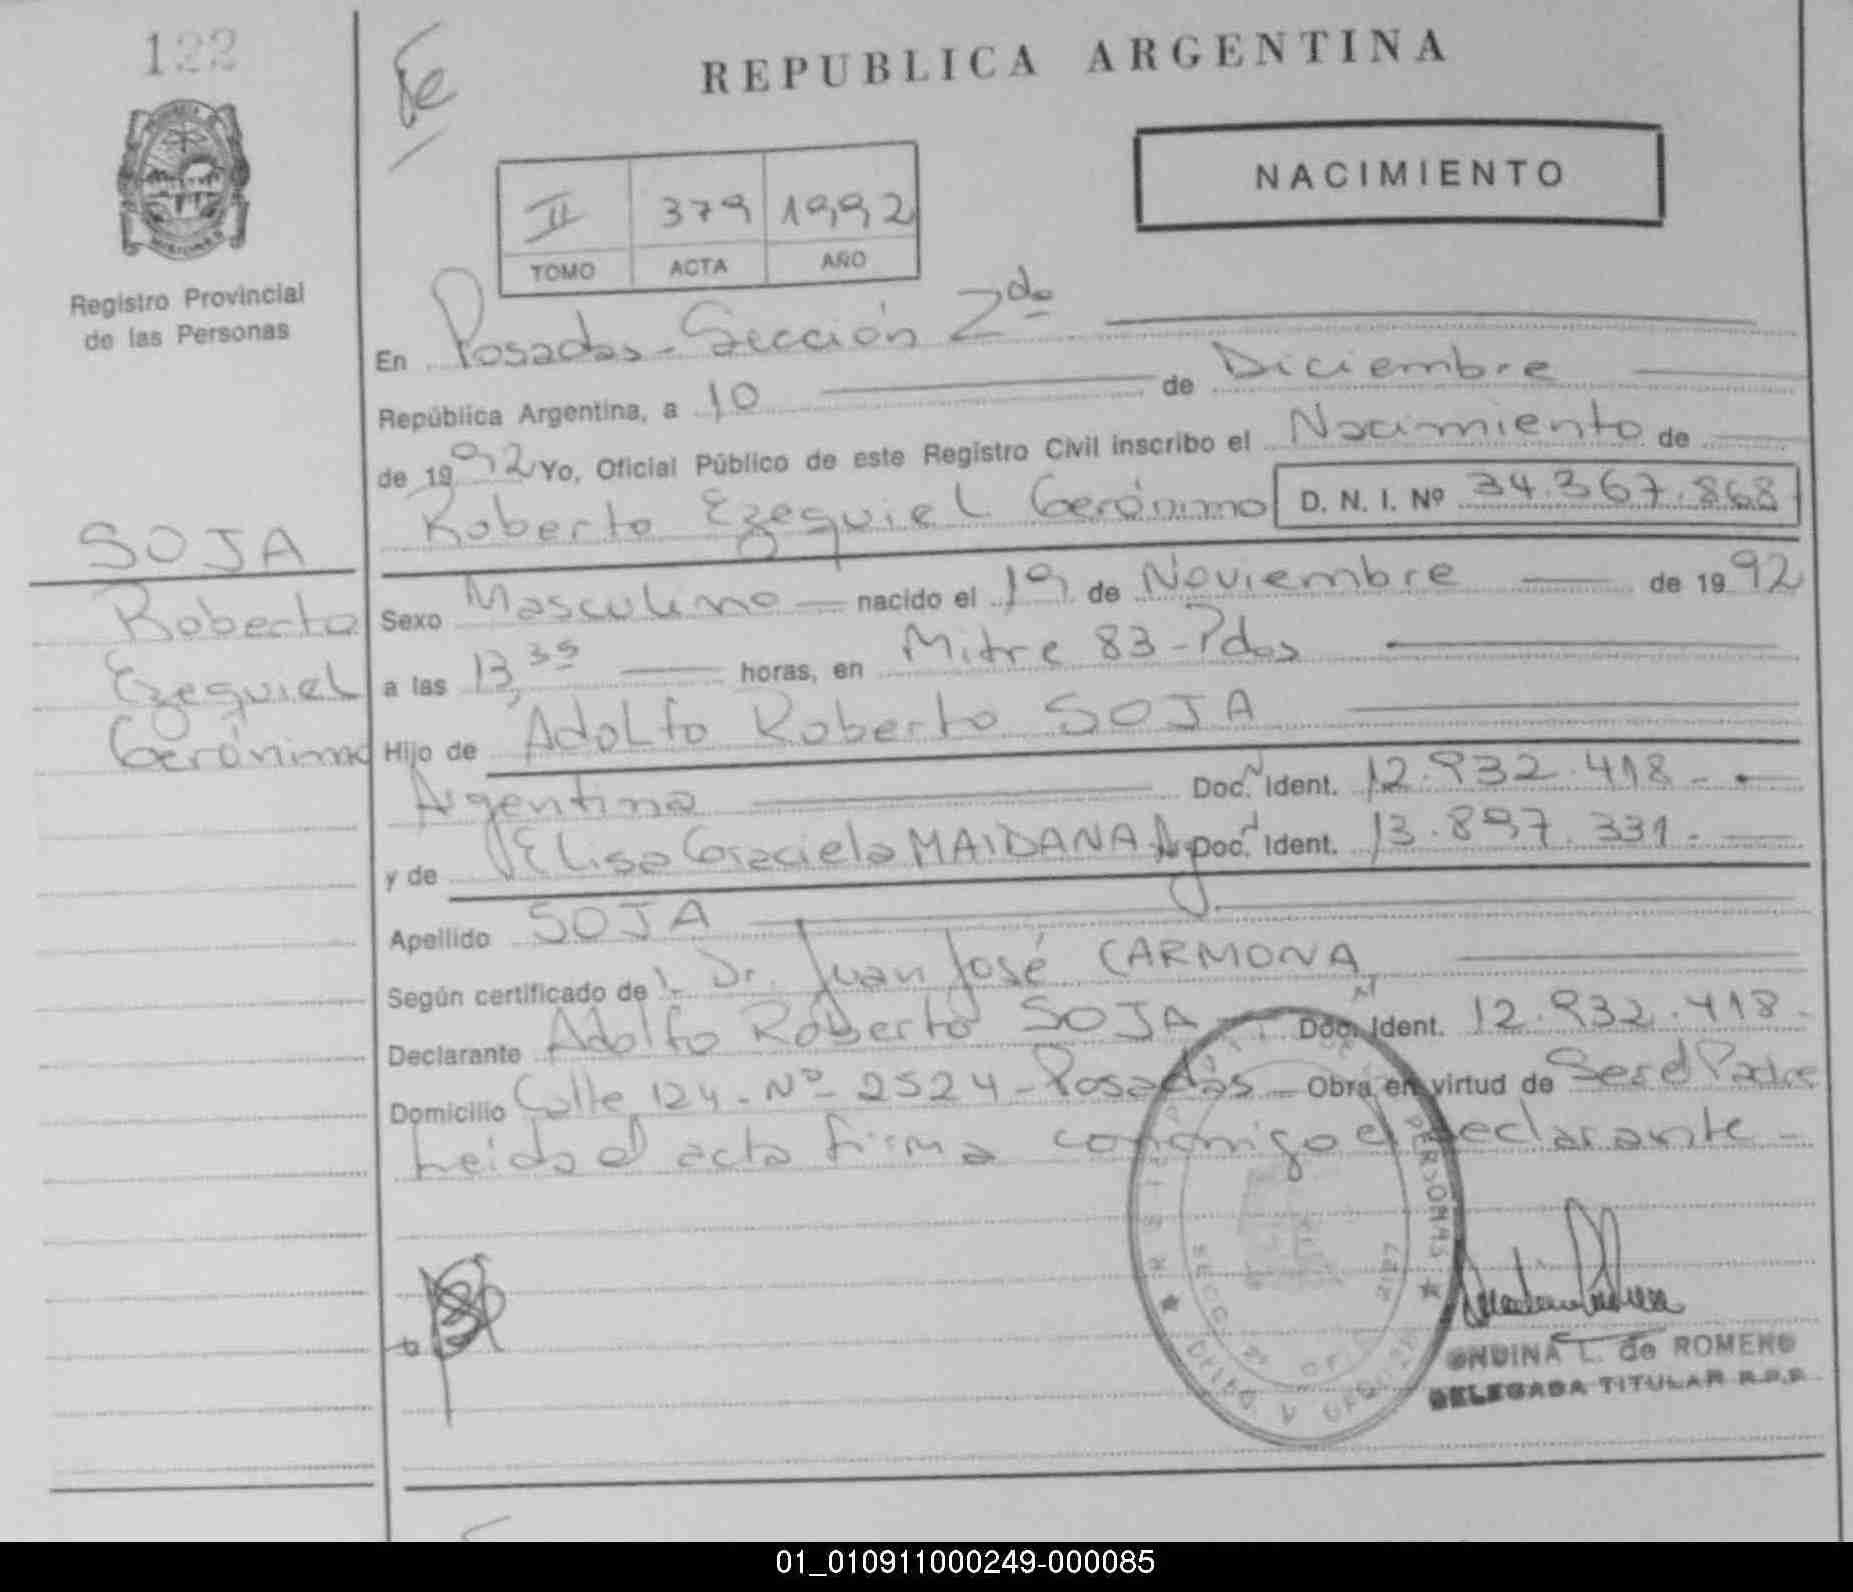 122
Fe
REPUBLICA ARGENTINA
NACIMIENTO
II 379 1992
TOMO ACTA AÑO
Registro Provincial
de las Personas
En Posadas - Sección 2da
República Argentina, a 10 de Diciembre
de 1992 Yo, Oficial Público de este Registro Civil inscribo el Nacimiento de
Roberto Ezequiel Gerónimo D. N. I. Nº 34.367.868
SOJA
Roberto
Ezequiel
Gerónimo
Sexo Masculino nacido el 19 de Noviembre de 1992
a las 13,35 horas, en Mitre 83 - Pdas
Hijo de Adolfo Roberto SOJA
Argentina Doc. Ident. 12.932.418 -
y de Elisa Graciela MAIDANA Arg. Doc. Ident. 13.897.331 -
Apellido SOJA
Según certificado del Dr. Juan José CARMONA
Declarante Adolfo Roberto SOJA Doc. Ident. 12.932.418 -
Domicilio Calle 124 - Nº 2524 - Posadas - Obra en virtud de Ser el Padre
Leida el acta firma conmigo el declarante -
PERSONAS
ONDINA L. de ROMERO
DELEGADA TITULAR R.P.P.
01_010911000249-000085